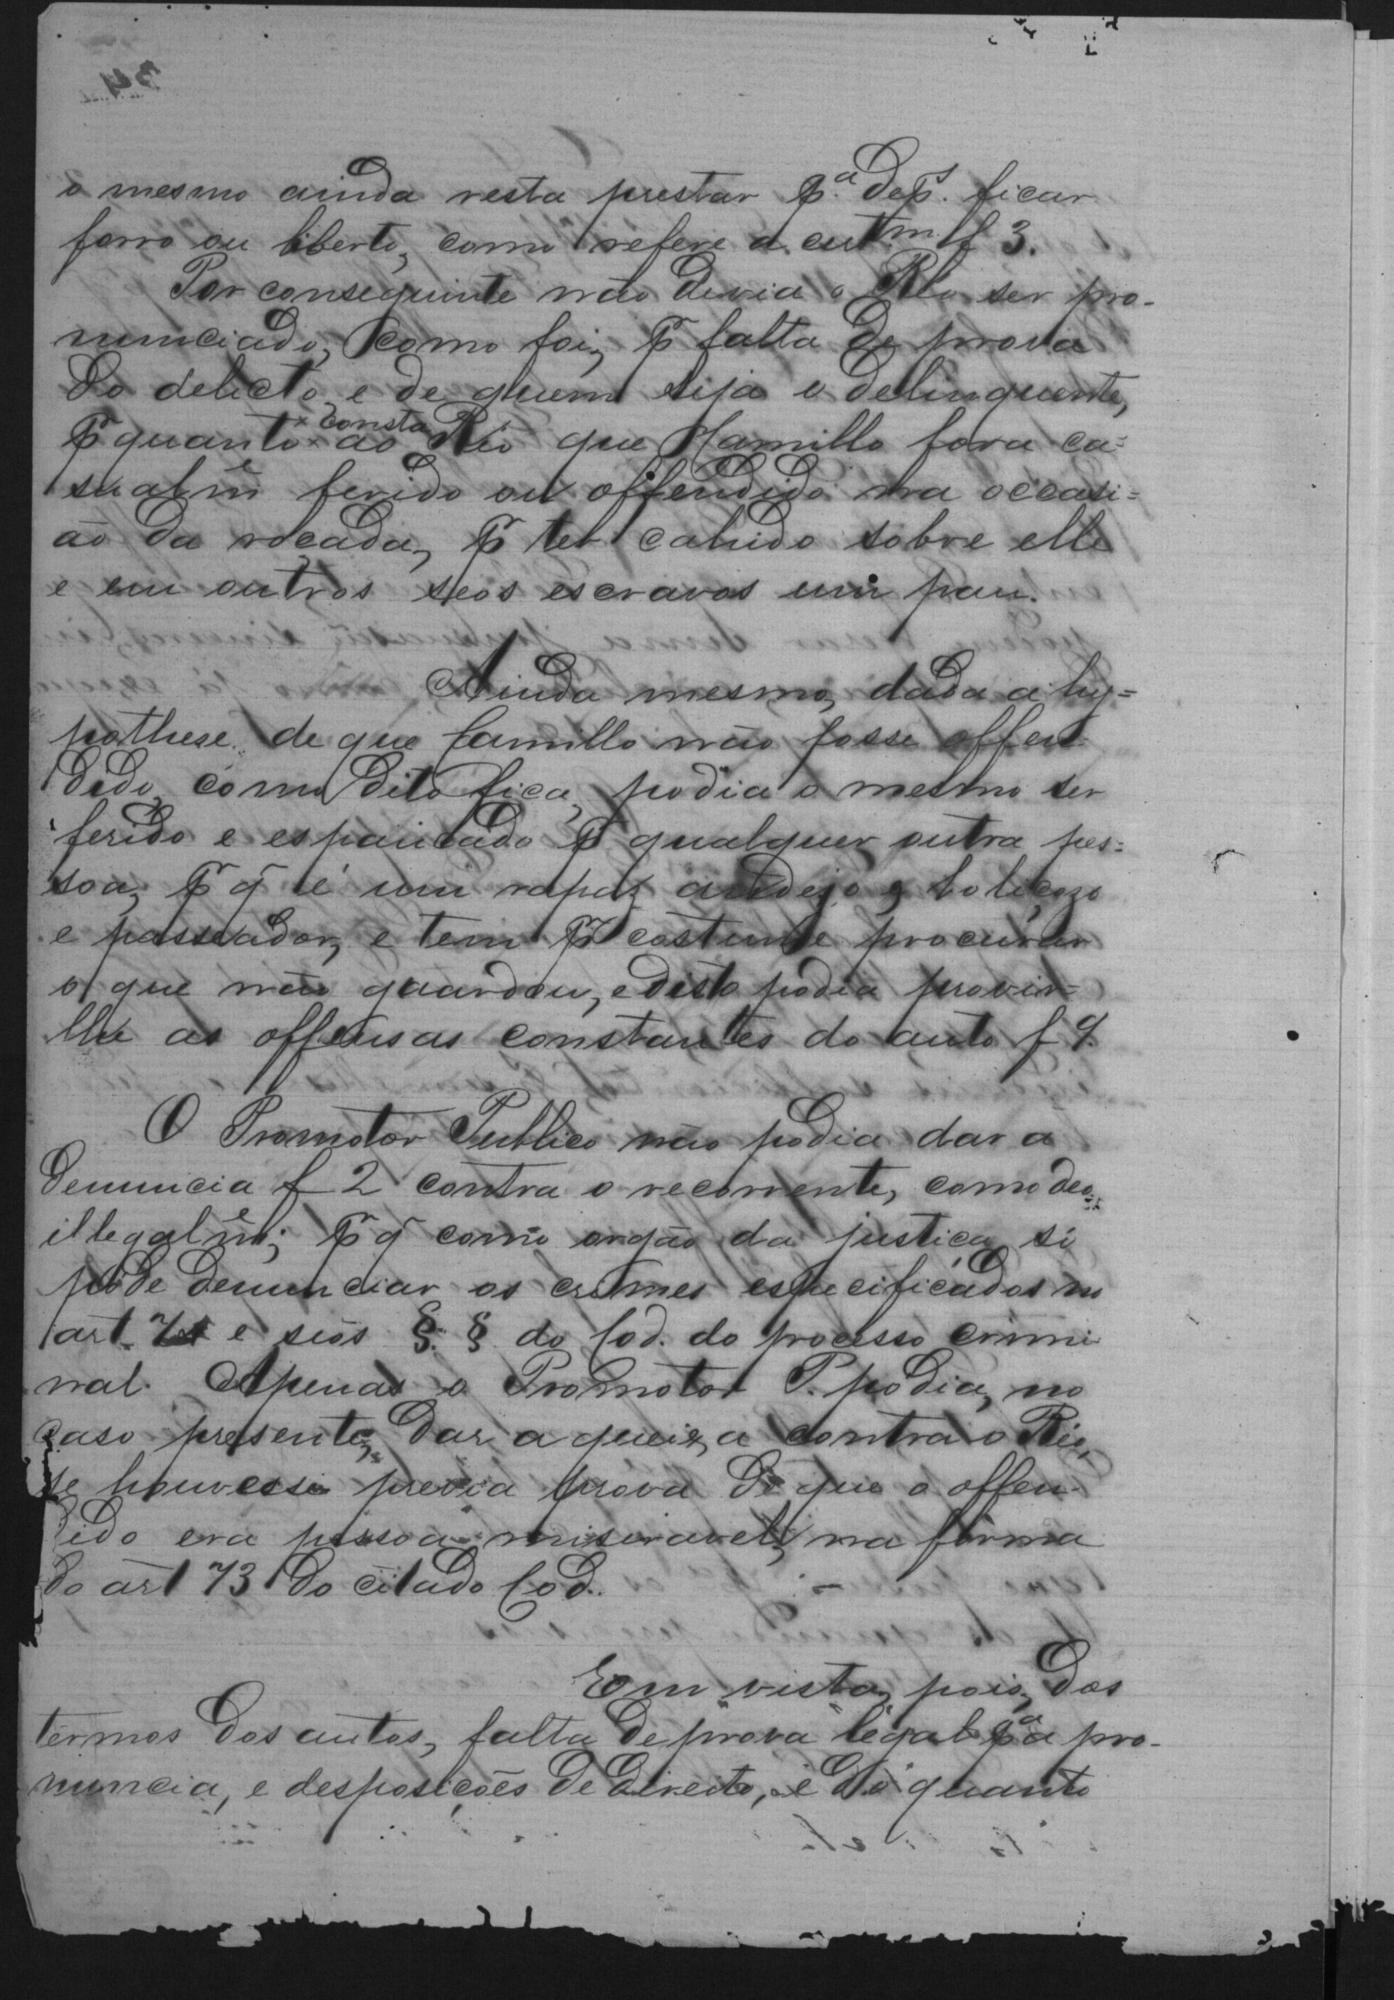 o mesmo ainda resta prestar pª. depˢ. ficar
forro ou liberto, como refere a cert.ᵐ f 3.
Por conseguinte não devia o Réo ser pro-
nunciado, como foi, p̃ falta de prova
do delicto, e de quem seja o delinquente,
p̃ quanto ao Réo que Camillo fora ca=
consta
sualm̃ᵉ ferido ou offendido na occasi=
ão da roçada, p̃ ter cahido sobre elle
e em outros seos escravos um pau.
Ainda mesmo, dada a hy=
pothese de que Camillo não fosse offen
dido, como dito fica, podia o mesmo ser
ferido e espancado p̃ qualquer outra pes=
soa, p̃ q̃ é um rapaz andejo, boliçozo
e passeador, e tem p̃ costume procurar
o que não guardou, e disto podia provir=
lhe as offensas constantes do auto f 9.
O Promotor Publico não podia dar a
denuncia f 2 contra o recorrente, como deo
illegalm̃ᵉ; p̃ q̃ como orgão da justiça só
póde denunciar os crimes especificados no
art. 74 e seos § § do Cod. do processo crimi
nal. Apenas o Promotor P. podia, no
caso presente, dar a queixa contra o Réo,
se houvesse previa prova de que o offen-
dido era pessoa miseravel, na fórma
do art 73 do citado Cod.
Em vista, pois, dos
termos dos autos, falta de prova legal pª a pro-
nuncia, e desposições de direito, e do quanto